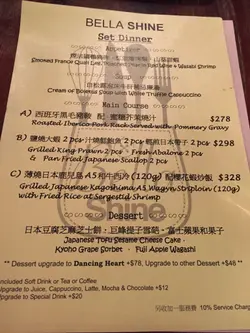 BELLA SHINE
Set Dinner
Appetizer
Smoked France Quail Egg, with Wasabi Shrimp
Soup
Cream of Boletus Soup with White Truffle Cappuccino
Main Course
A) 西班牙黑毛豬鞍 配 蜜糖芥茉燒汁 $278
Roasted Iberico Pork Rack Served with Pommery Gravy
B) 鹽燒大蝦 2 pcs 汁燒鮮鮑魚 2 pcs 輕煎日本帶子 2 pcs $298
Grilled King Prawn 2 pcs · Fresh Abalone 2 pcs
& Pan Fried Japanese Scallop 2 pcs
C) 薄燒日本鹿兒島A5和牛西冷 (120g) 配櫻花蝦炒飯 $328
Grilled Japanese Kagoshima A5 Wagyu Striploin (120g)
with Fried Rice at Sergestid Shrimp
Dessert
日本豆腐芝麻芝士餅．京都提子雪葩．富士蘋果和菓子
Japanese Tofu Sesame Cheese Cake·
Kyoho Grape Sorbet · Fuji Apple Wagashi
Dessert upgrade to Dancing Heart +$78, Upgrade to other Dessert +$48
Included Soft Drink or Tea or Coffee
Upgrade to Juice, Cappuccino, Latte, Mocha & Chocolate +$12
Upgrade to Special Drink +$20
另收加一服務費 10% Service Char
Shine